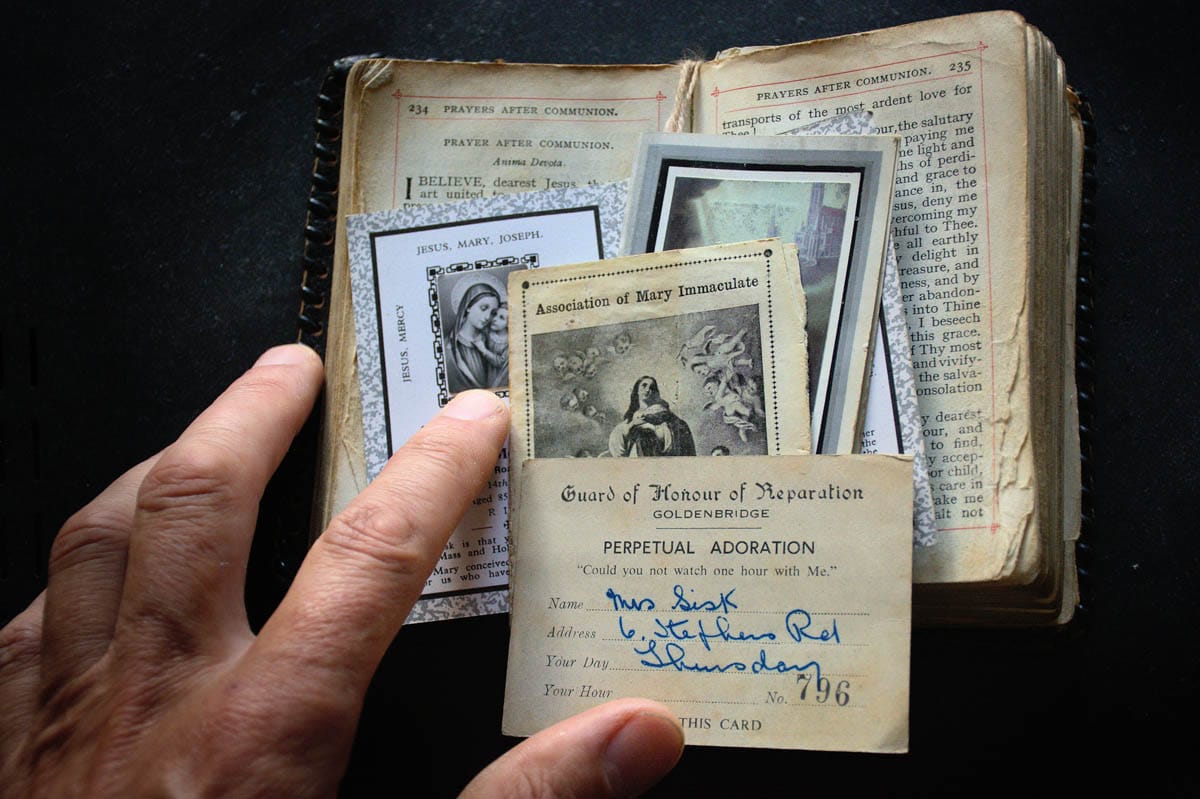 234 PRAYERS AFTER COMMUNION.
PRAYER AFTER COMMUNION.
Anima Devota.
I BELIEVE, dearest Jesus,
art united
PRAYERS AFTER COMMUNION. 235
transports of the most ardent love for
Thee!
our, the salutary
paying me
light and
of perdi-
and grace to
in, the
deny me
my
to Thee.
all earthly
delight in
and
and by
abandon-
into Thine
I beseech
this grace.
Thy most
and vivify-
the salva-
dearest
our, and
to find,
accep-
or child,
care in
me
not
JESUS, MARY, JOSEPH.
JESUS, MERCY
14th
aged 85
R
is that
Mass and
Mary conceived
us who have
Association of Mary Immaculate
Guard of Honour of Reparation
GOLDENBRIDGE
PERPETUAL ADORATION
"Could you not watch one hour with Me."
Name Mrs Sisk
Address 6. Stephens Rd
Your Day Thursday
Your Hour No. 796
THIS CARD